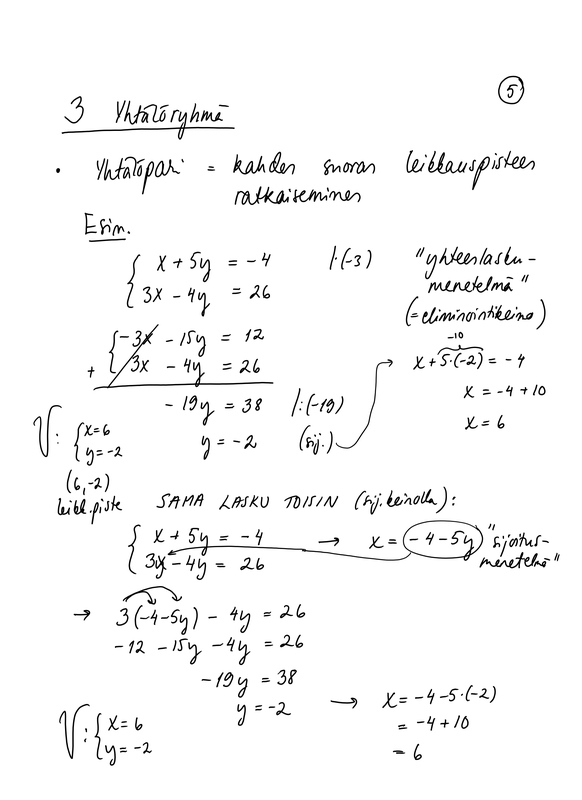 5
3 Yhtälöryhmä
• Yhtälöpari = kahden suoran leikkauspisteen
ratkaiseminen
Esim.
{ x + 5y = -4 |·(-3)
3x - 4y = 26
"yhteenlasku-
menetelmä"
(= eliminointikeino)
{ -3x - 15y = 12
+ 3x - 4y = 26
-19y = 38 |:(-19)
y = -2 (sij.)
-10
x + 5·(-2) = -4
x = -4 + 10
x = 6
V: { x = 6
y = -2
(6, -2)
leikk.piste
SAMA LASKU TOISIN (sij.keinolla):
{ x + 5y = -4 → x = -4 - 5y
3x - 4y = 26
"sijoitus-
menetelmä"
→ 3(-4-5y) - 4y = 26
-12 - 15y - 4y = 26
-19y = 38
y = -2 → x = -4 - 5·(-2)
= -4 + 10
= 6
V: { x = 6
y = -2